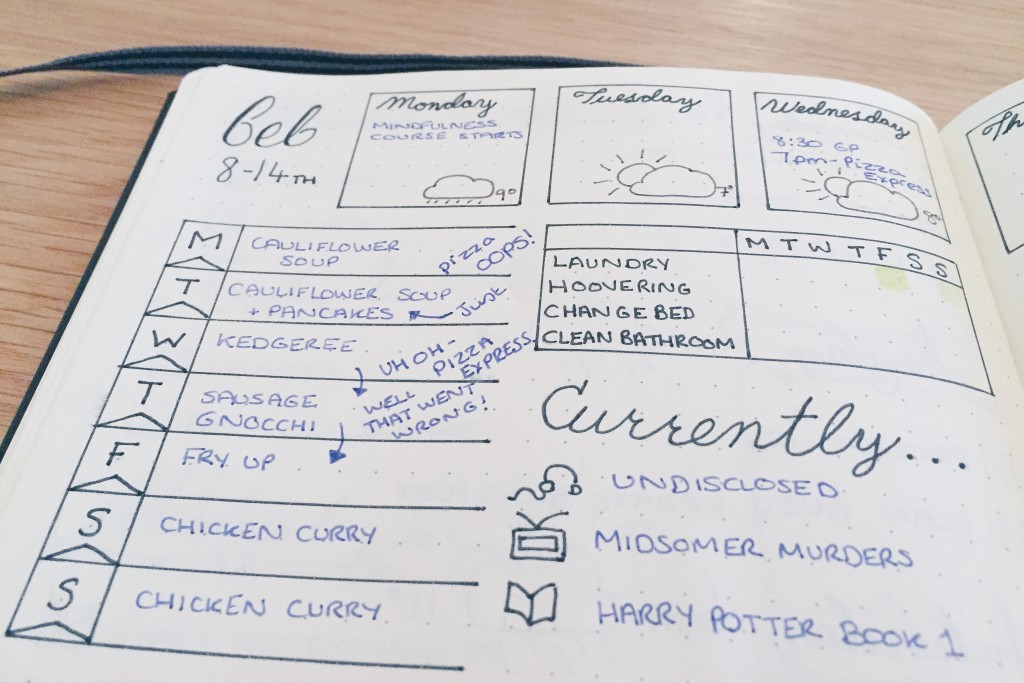 Feb
8-14TH
Monday
MINDFULNESS
COURSE STARTS
9°
Tuesday
7°
Wednesday
8:30 GP
7pm - Pizza
Express
8°
Th
M
CAULIFLOWER
SOUP
pizza
OOPS!
T
CAULIFLOWER SOUP
+ PANCAKES
Just
W
KEDGEREE
UH OH-
PIZZA
EXPRESS.
T
SAUSAGE
GNOCCHI
WELL
THAT WENT
WRONG!
F
FRY UP
S
CHICKEN CURRY
S
CHICKEN CURRY
M T W T F S S
LAUNDRY
HOOVERING
CHANGE BED
CLEAN BATHROOM
Currently...
UNDISCLOSED
MIDSOMER MURDERS
HARRY POTTER BOOK 1